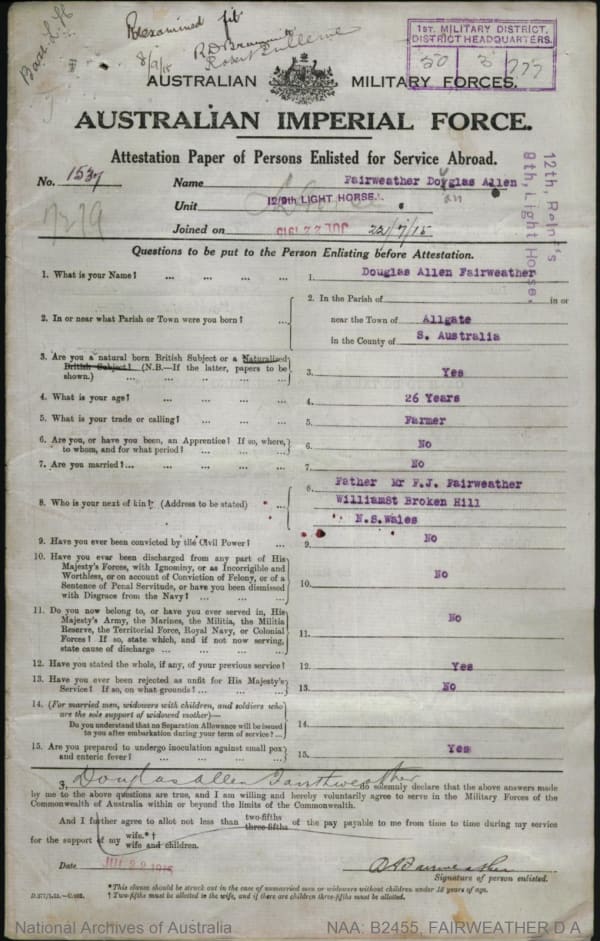 Reexamined fit
8/9/15
1ST. MILITARY DISTRICT.
DISTRICT HEADQUARTERS.
20 3 777
AUSTRALIAN MILITARY FORCES.
AUSTRALIAN IMPERIAL FORCE.
Attestation Paper of Persons Enlisted for Service Abroad.
No. 1537 Name Fairweather Douglas Allen
Unit 12/9th LIGHT HORSE.
Joined on 22/7/15
12th, Rein's
9th, Light Horse.
Questions to be put to the Person Enlisting before Attestation.
1. What is your Name? ... ... ... ... 1. Douglas Allen Fairweather
2. In or near what Parish or Town were you born? ... 2. In the Parish of in or
near the Town of Allgate
in the County of S. Australia
3. Are you a natural born British Subject or a Naturalised
British Subject? (N.B.—If the latter, papers to be
shown.) ... ... ... ... ... 3. Yes
4. What is your age? ... ... ... ... 4. 26 Years
5. What is your trade or calling? ... ... ... 5. Farmer
6. Are you, or have you been, an Apprentice? If so, where,
to whom, and for what period? ... ... ... 6. No
7. Are you married? ... ... ... ... ... 7. No
8. Who is your next of kin? (Address to be stated) ... 8. Father Mr F.J. Fairweather
WilliamSt Broken Hill
N.S.Wales
9. Have you ever been convicted by the Civil Power? ... 9. No
10. Have you ever been discharged from any part of His
Majesty's Forces, with Ignominy, or as Incorrigible and
Worthless, or on account of Conviction of Felony, or of a
Sentence of Penal Servitude, or have you been dismissed
with Disgrace from the Navy? ... ... ... 10. No
11. Do you now belong to, or have you ever served in, His
Majesty's Army, the Marines, the Militia, the Militia
Reserve, the Territorial Force, Royal Navy, or Colonial
Forces? If so, state which, and if not now serving,
state cause of discharge ... ... ... ... 11. No
12. Have you stated the whole, if any, of your previous service? 12. Yes
13. Have you ever been rejected as unfit for His Majesty's
Service? If so, on what grounds? ... ... ... 13. No
14. (For married men, widowers with children, and soldiers who
are the sole support of widowed mother)—
Do you understand that no Separation Allowance will be issued
to you after embarkation during your term of service? ... 14.
15. Are you prepared to undergo inoculation against small pox
and enteric fever? ... ... ... ... 15. Yes
I, Douglas Allen Fairweather do solemnly declare that the above answers made
by me to the above questions are true, and I am willing and hereby voluntarily agree to serve in the Military Forces of the
Commonwealth of Australia within or beyond the limits of the Commonwealth.
And I further agree to allot not less than two-fifths three-fifths of the pay payable to me from time to time during my service
for the support of my wife.*† wife and children.
Date JUL 22 1915 D A Fairweather
Signature of person enlisted.
*This clause should be struck out in the case of unmarried men or widowers without children under 18 years of age.
† Two-fifths must be allotted to the wife, and if there are children three-fifths must be allotted.
National Archives of Australia NAA: B2455, FAIRWEATHER D A